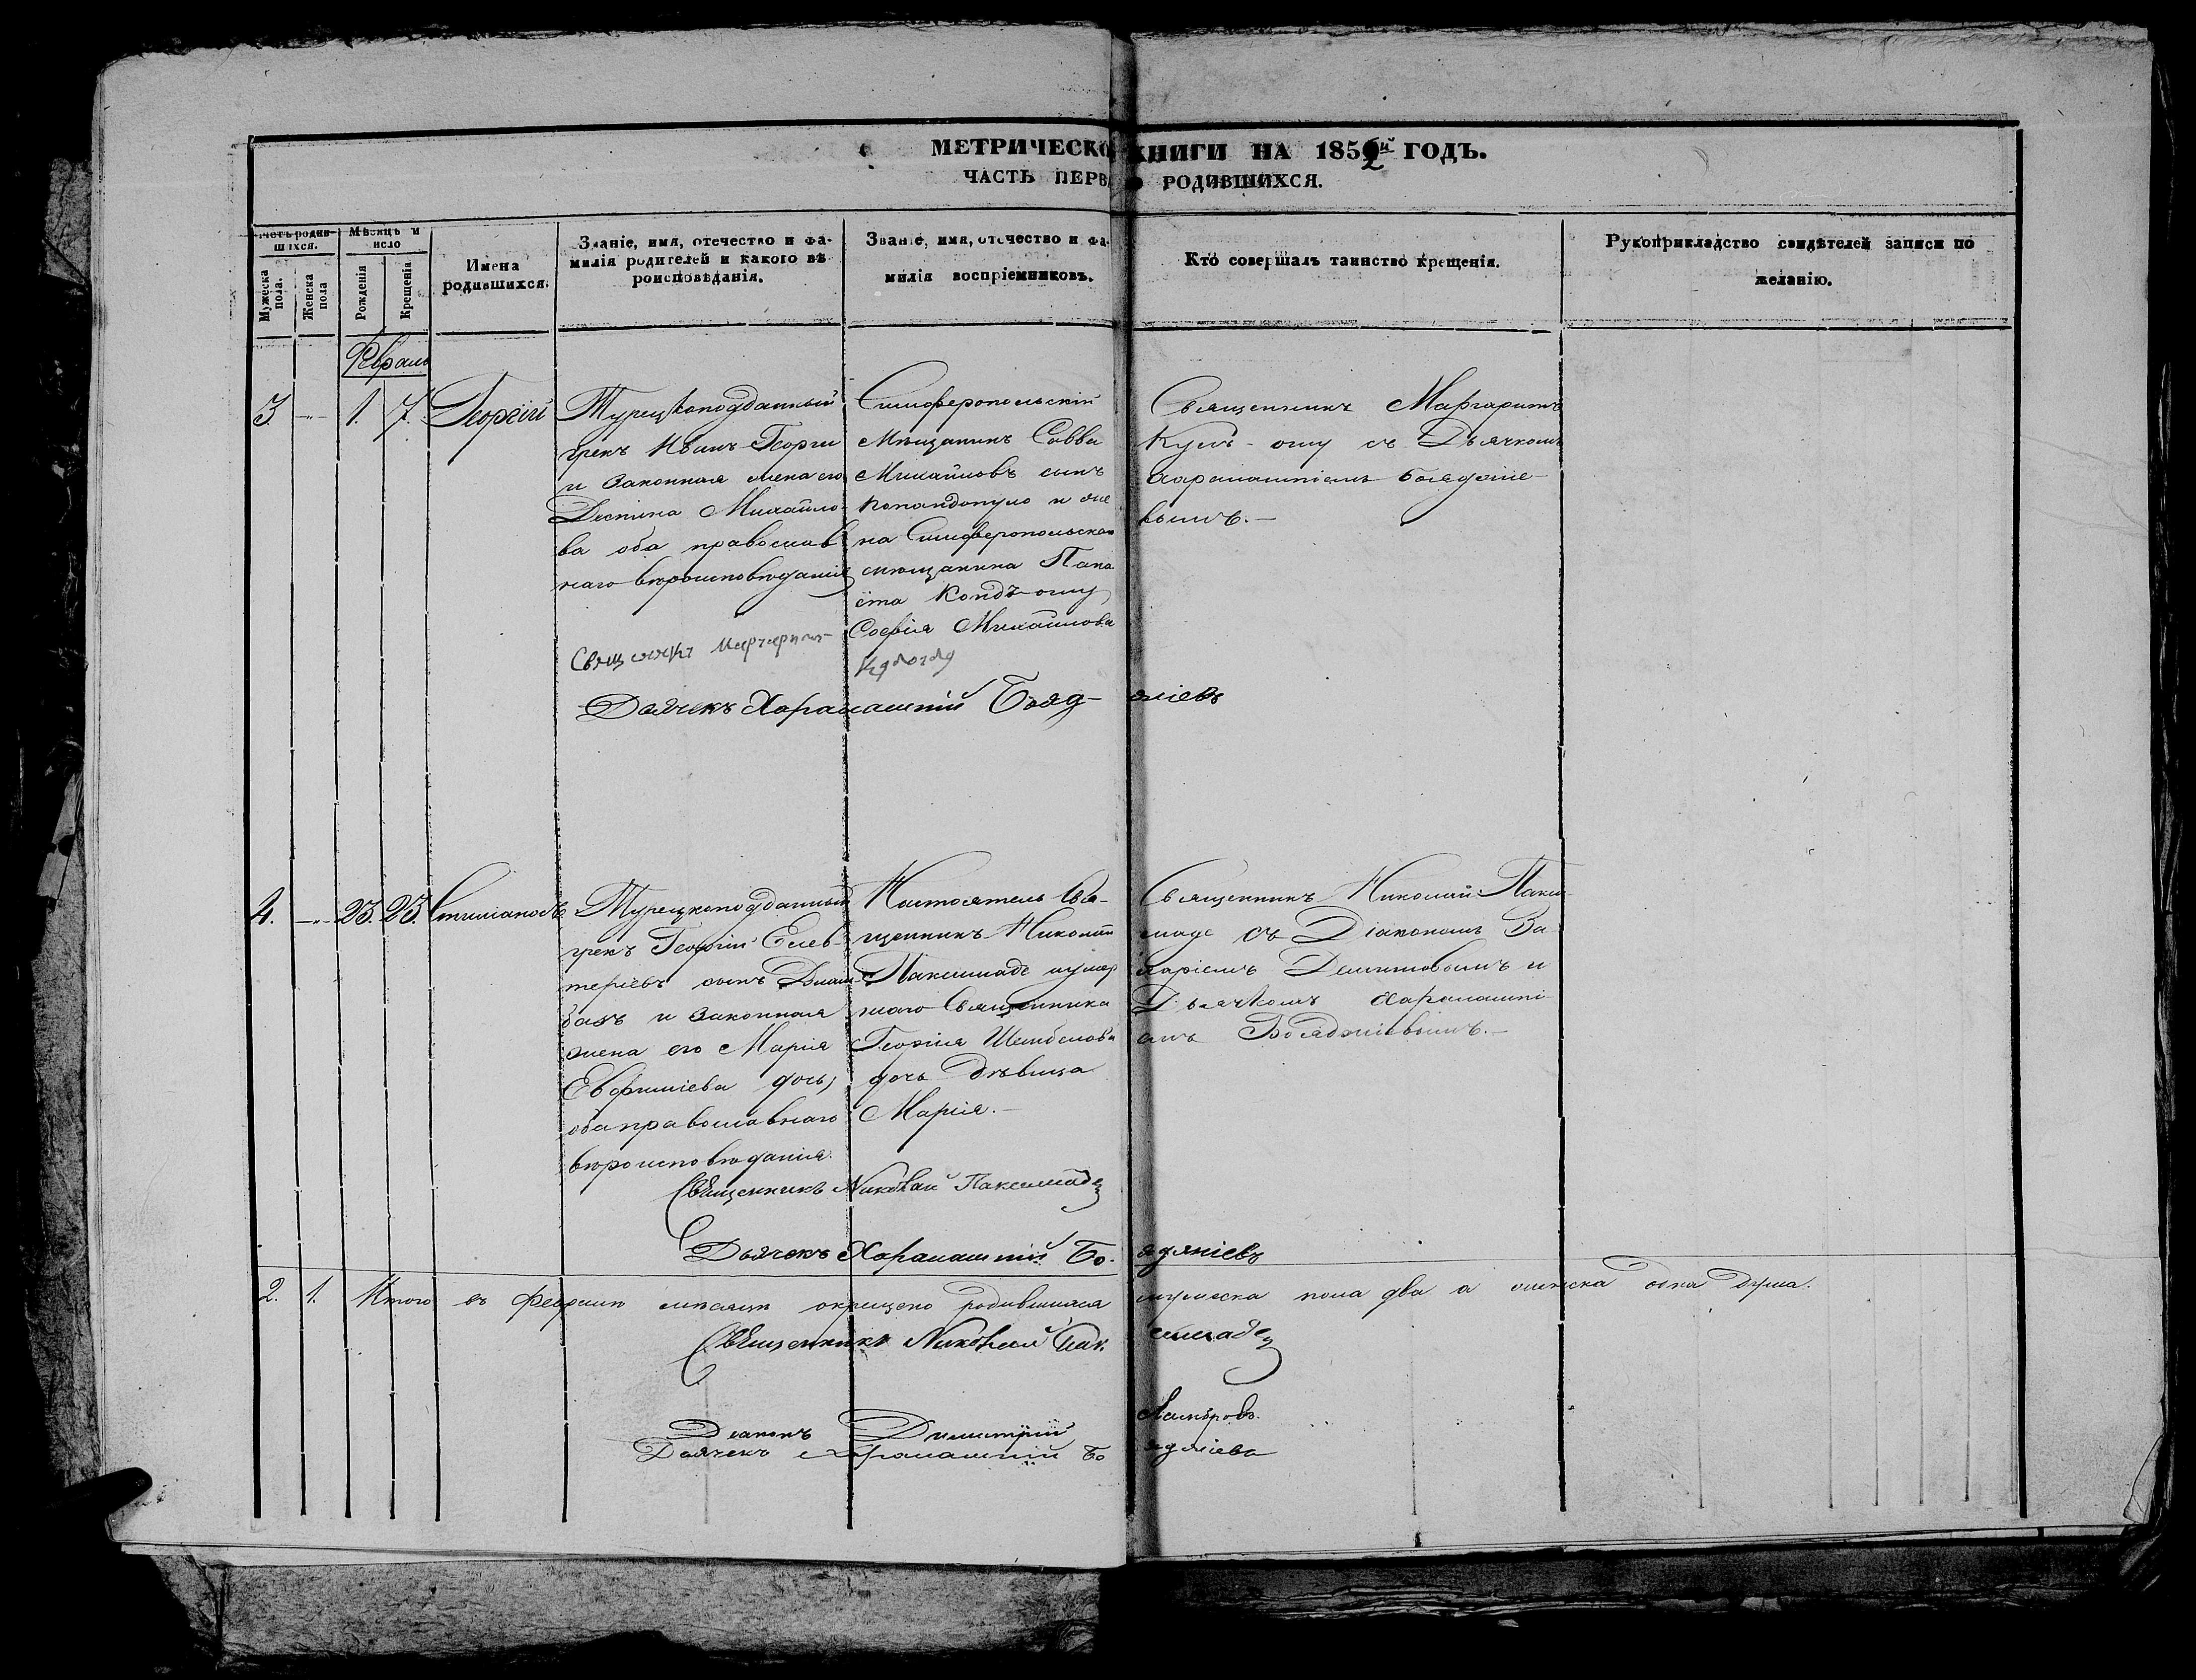 МЕТРИЧЕСКО КНИГИ НА 1852й ГОДЪ.
ЧАСТЬ ПЕРВ РОДИВШИХСЯ.
четъ родив-
шихся.
Мужеска пола.
Женска пола
Мѣсяцъ и
исло
Рожденія
Крещенія
Имена
родившихся.
Званіе, имя, отечество и фа-
милія родителей и какого вѣ
роисповѣданія.
Званіе, имя, отечество и фа-
милія воспріемниковъ.
Кто совершалъ таинство крещенія.
Рукоприкладство свидѣтелей записи по
желанію.
Февраль
3. —"— 1. 7. Георгій
Турецкоподданный
грекъ Иванъ Георги
и законная жена его
Деспина Михайло-
ва оба православ
наго вѣроисповѣданія
Симферопольскій
Мѣщанинъ Савва
Михайловъ сынъ
и же
на Симферопольскаго
мѣщанина Пана
іота Кондъ-оглу
Софія Михайлова
Священникъ Маргаритъ
съ Дьячкомъ
Харалампіемъ Бояджіе-
вымъ.—
Маргаритъ
Дьячекъ Харалампій Бояд- жіевъ
4. —"— 23. 23. Стиліаносъ
Турецкоподданный
грекъ Георгій Елев-
теріевъ сынъ
и законная
жена его Марія
Евфиміева дочь,
оба православнаго
вѣроисповѣданія.
Настоятель Свя-
щенникъ Николай
Паксимаде и умер
шаго Священника
Георгія
дочь дѣвица
Марія.—
Священникъ Николай Пакси-
маде съ Діакономъ
и
Дьячкомъ Харалампі-
емъ Бояджіевымъ.—
Священникъ Николай Паксимаде
Дьячекъ Харалампій Бо- яджіевъ
2. 1. Итого въ Февралѣ мѣсяцѣ окрещено родившихся мужеска пола два а женска одна душа.
Священникъ Николай Пак- симаде
Діаконъ Димитрій
Дьячекъ Харалампій Бо яджіевъ